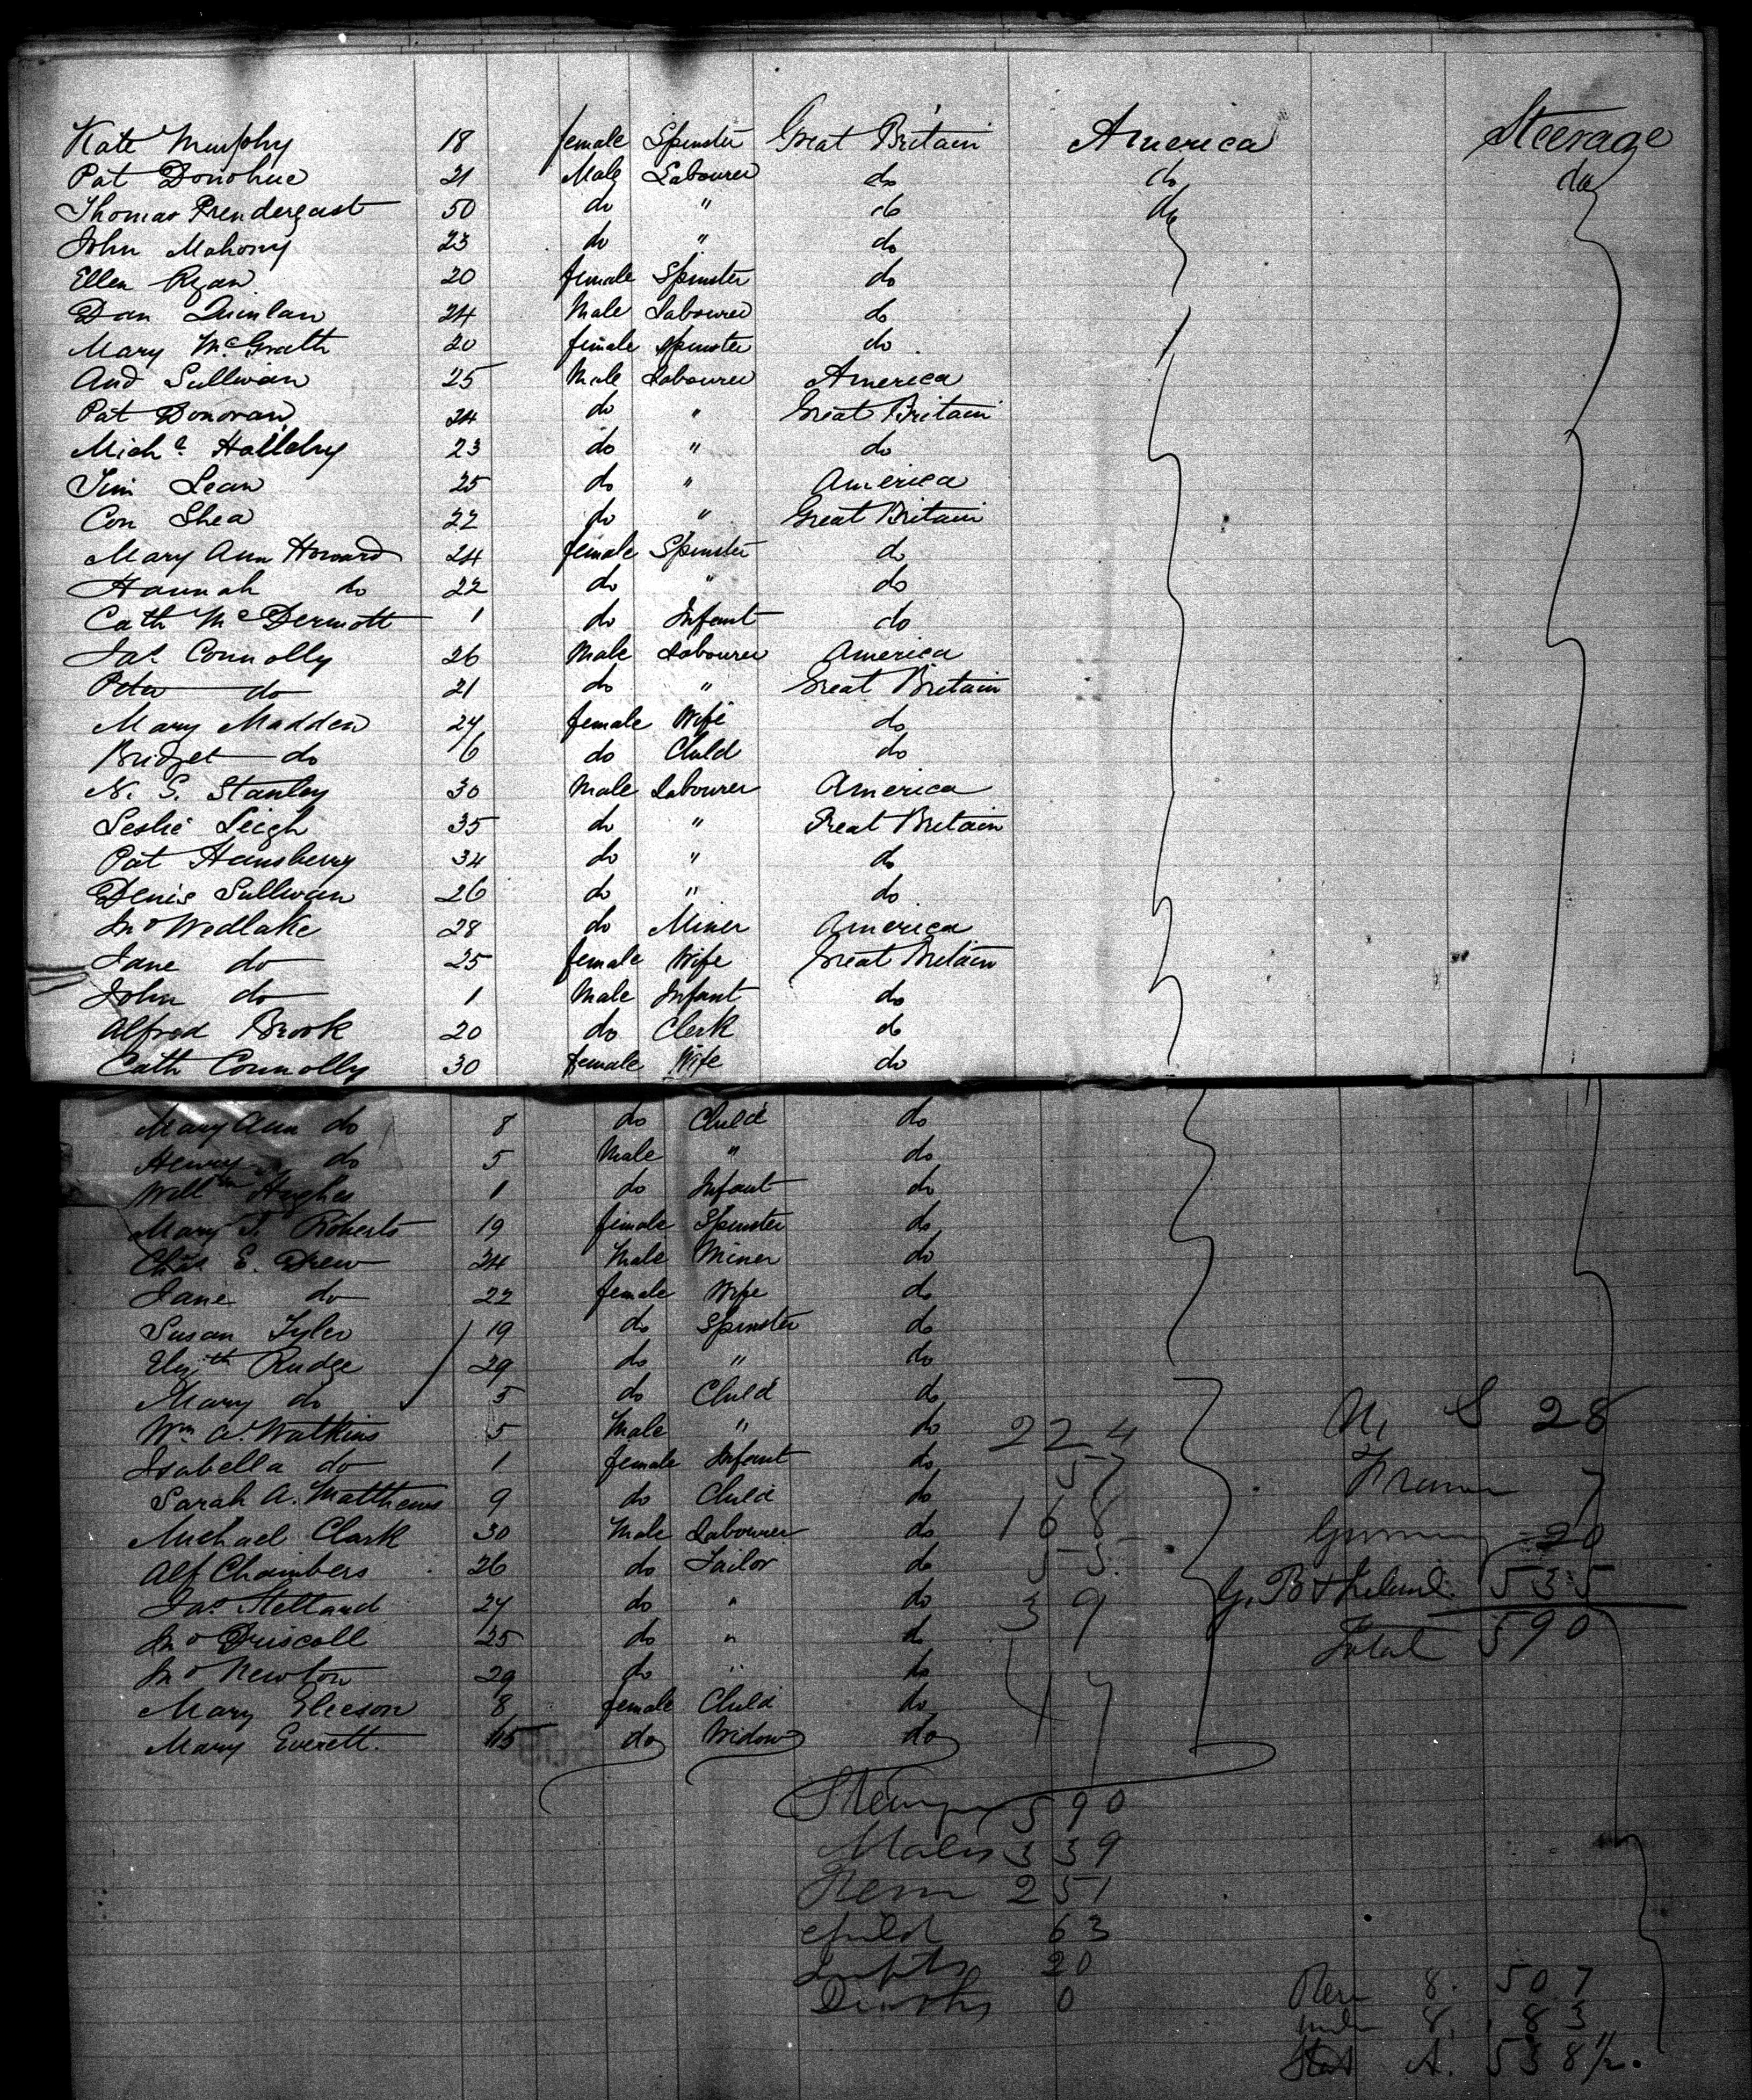 Kate Murphy 18 female Spinster Great Britain America Steerage
Pat Donohue 21 Male Labourer do do do
Thomas Prendergast 50 do " do do
John Mahony 23 do " do
Ellen Ryan 20 female Spinster do
Dan Quinlan 24 Male Labourer do
Mary McGrath 20 female Spinster do
And Sullivan 25 Male Labourer America
Pat Donovan 24 do " Great Britain
Michl 23 do " do
Tim Lean 25 do " America
Con Shea 22 do " Great Britain
Mary Ann Howard 24 female Spinster do
Hannah do 22 do " do
Cath McDermott 1 do Infant do
Jas Connolly 26 Male Labourer America
Peter do 21 do " Great Britain
Mary Madden 24 female Wife do
Bridget do 6 do Child do
N. S. Stanley 30 Male Labourer America
Leslie Leigh 35 do " Great Britain
Pat Hansberry 34 do " do
Denis Sullivan 26 do " do
Jno Wedlake 28 do Miner America
Jane do 25 female Wife Great Britain
John do 1 Male Infant do
Alfred Brook 20 do Clerk do
Cath Connolly 30 female Wife do
Mary Ann do 8 do Child do
Henry do 5 Male " do
Willm Hughes 1 do Infant do
Mary J. Roberts 19 female Spinster do
Chas E. Drew 24 Male Miner do
Jane do 22 female Wife do
Susan Tyler 19 do Spinster do
Elizth Rudge 29 do " do
Mary do 5 do Child do
Wm A. Watkins 5 Male " do 224 U. S 28
Isabella do 1 female Infant do 57 7
Sarah A. Matthews 9 do Child do
Michael Clark 30 Male Labourer do 168 20
Alf Chambers 26 do Tailor do 55 G. B & Ireland 535
Jas 24 do " do 39 Total 590
Jno Driscoll 25 do " do
Jno Newton 29 do " do 47
Mary Gleeson 8 female Child do
Mary Everett do Widow do
Steerage 590
Males 339
Fem 251
Child 63
Infts 20
Deaths 0
8. 507
under 8. 83
Stat A. 538½.